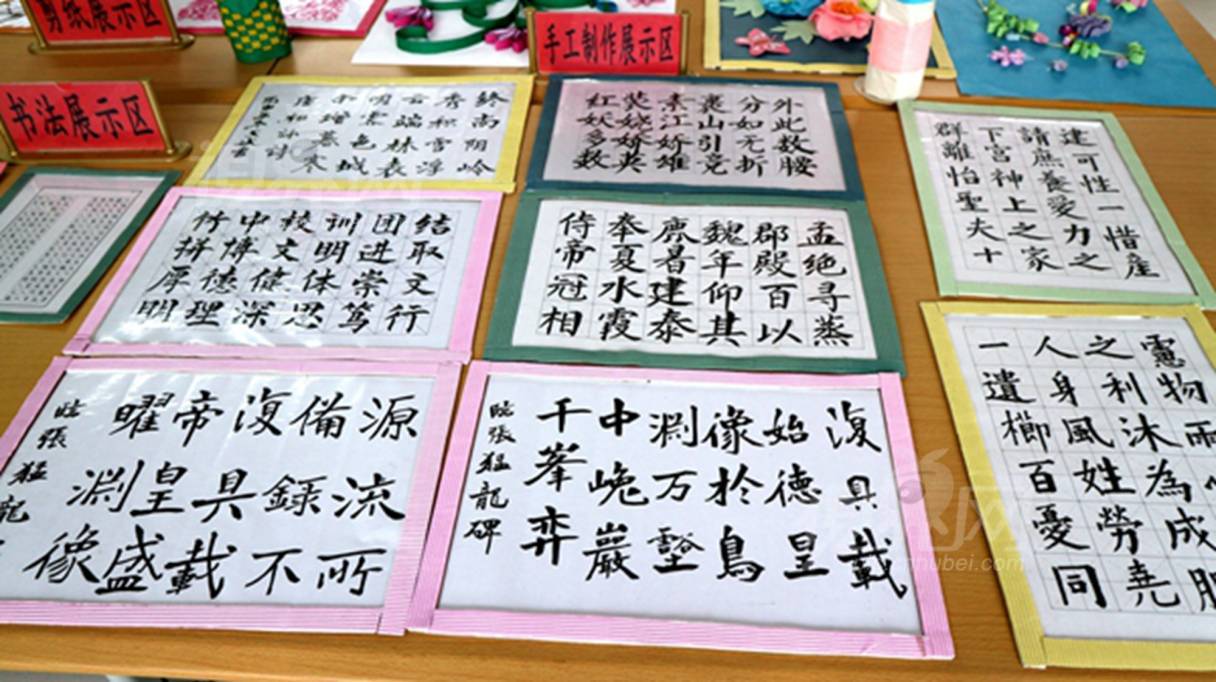 剪纸展示区
手工制作展示区
书法展示区
终南阴岭
秀积雪浮
云端林表
明霁色城
中增暮寒
唐祖咏诗
外此数腰
分如无折
裹山引竞
素江娇雄
娆娇英
红妖多数
建可性一惜産
請庶養愛力之
下宫神上之家
群離怡聖夫十
结取文行
团进崇笃
训明体思
校文健深
中博德理
竹拼厚明
孟绝寻蒸
郡殿百以
魏年仰其
暑建泰
奉夏水霞
侍帝冠相
靈物雨
之利沐為成
人身風姓勞堯
一遺櫛百憂同
源流所
備録不
復具載
帝皇盛
曜渊像
临張猛龍
復具載
始德皇
像於鳥
渊万豁
中峗巖
千峯弈
临張猛龍碑